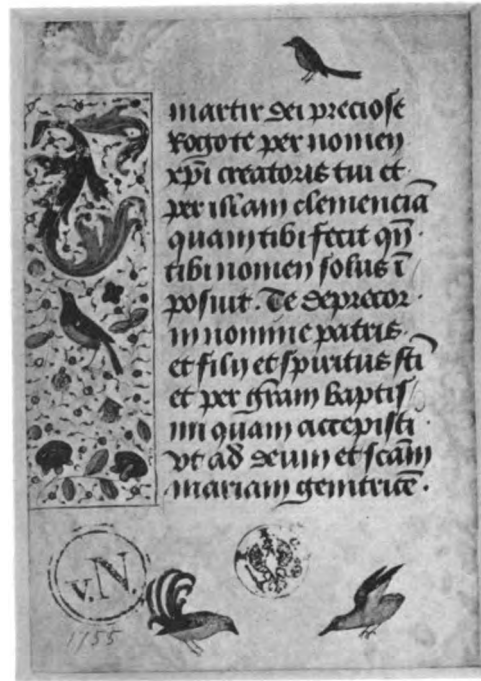 martir dei preciose
Rogo te per nomen
xp̄i creatoris tui et
per istam clemenciā
quam tibi fecit qn̄
tibi nomen solus ī
posuit. Te deprecor
in nomine patris
et filij et spiritus sc̄ti
et per gr̄am baptis
mi quam accepisti
vt ad deum et scām
mariam genitricē.
v.N.
1755